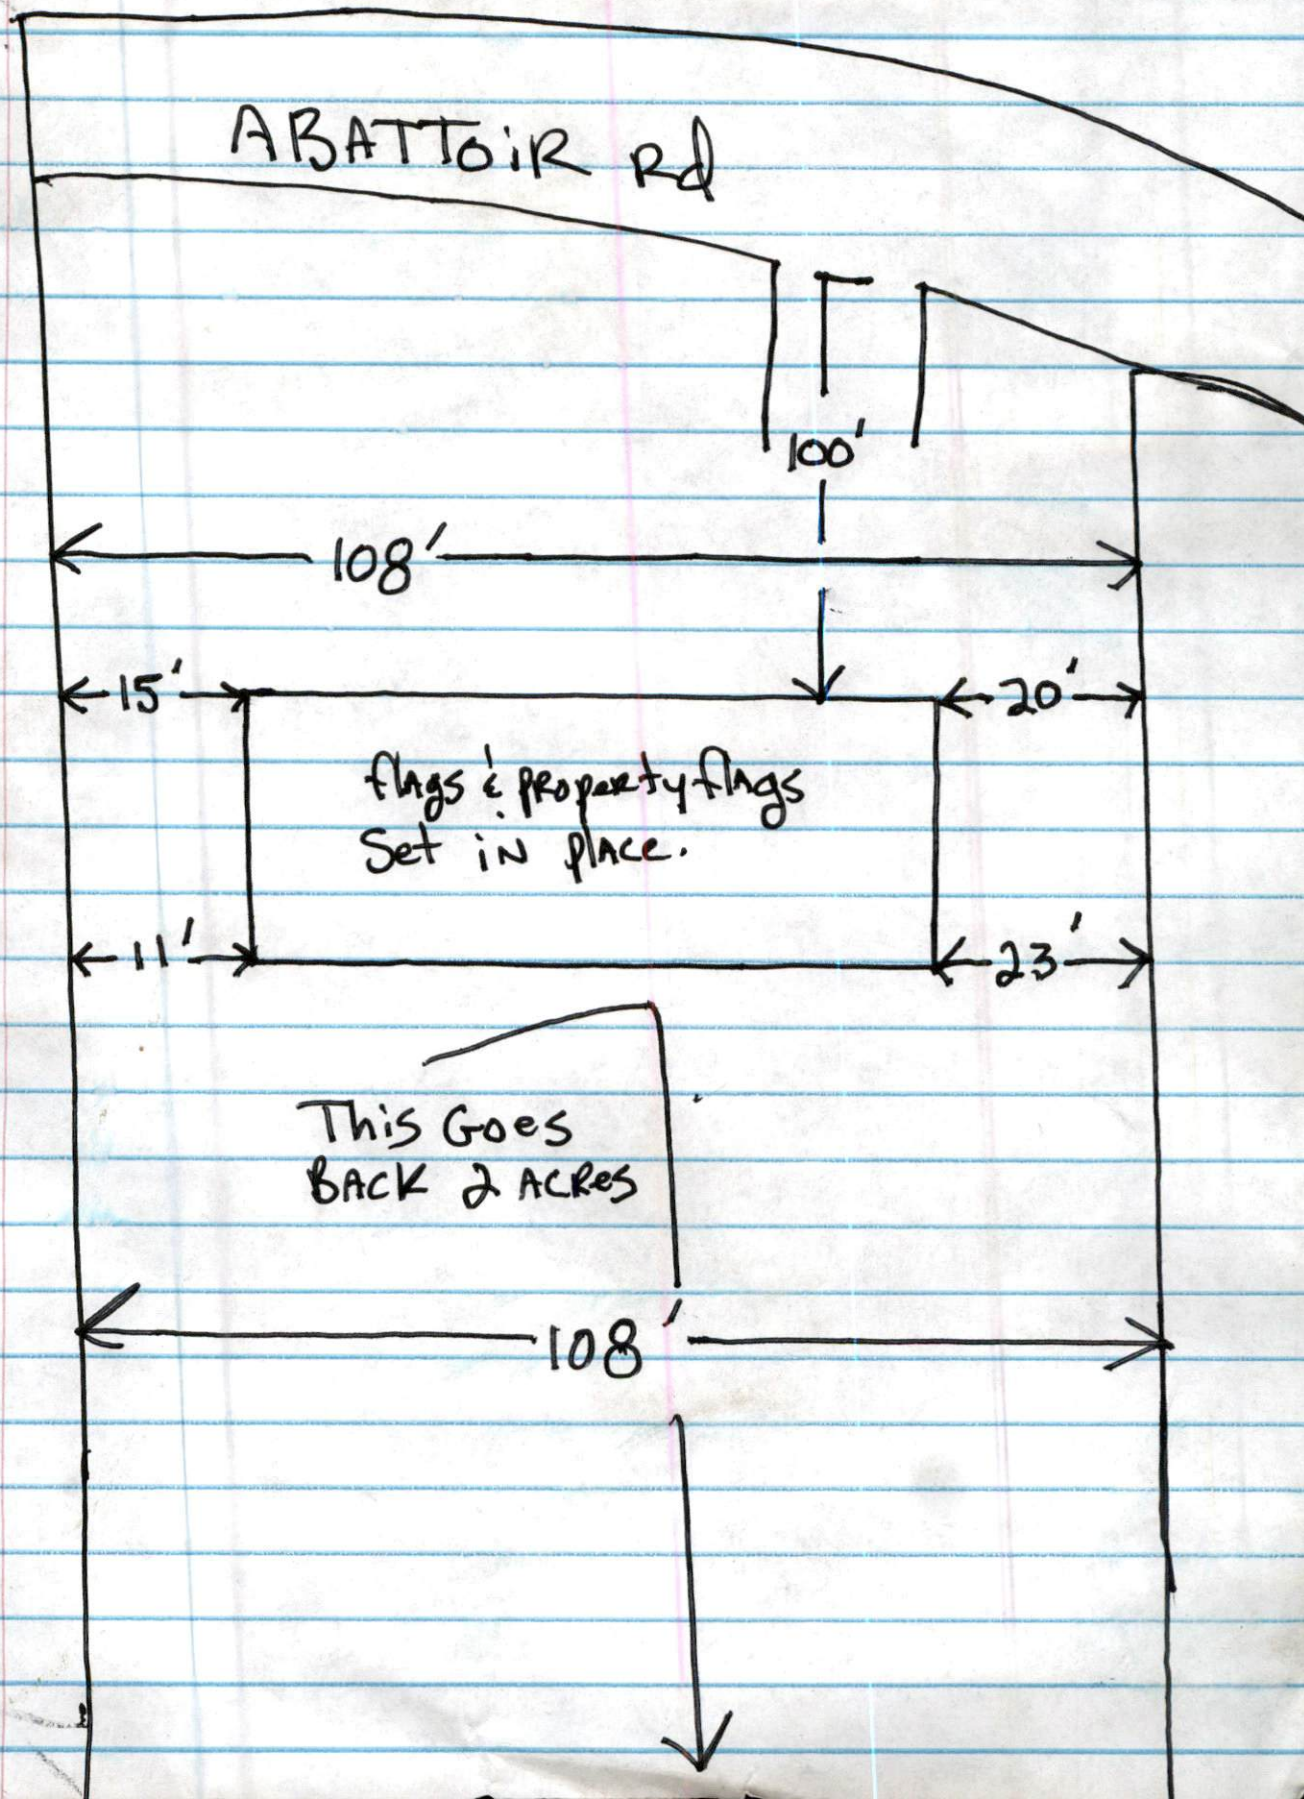 ABATTOiR Rd
100'
108'
15'
20'
flags & property flags
Set iN place.
11'
23'
This Goes
BACK 2 ACRes
108'